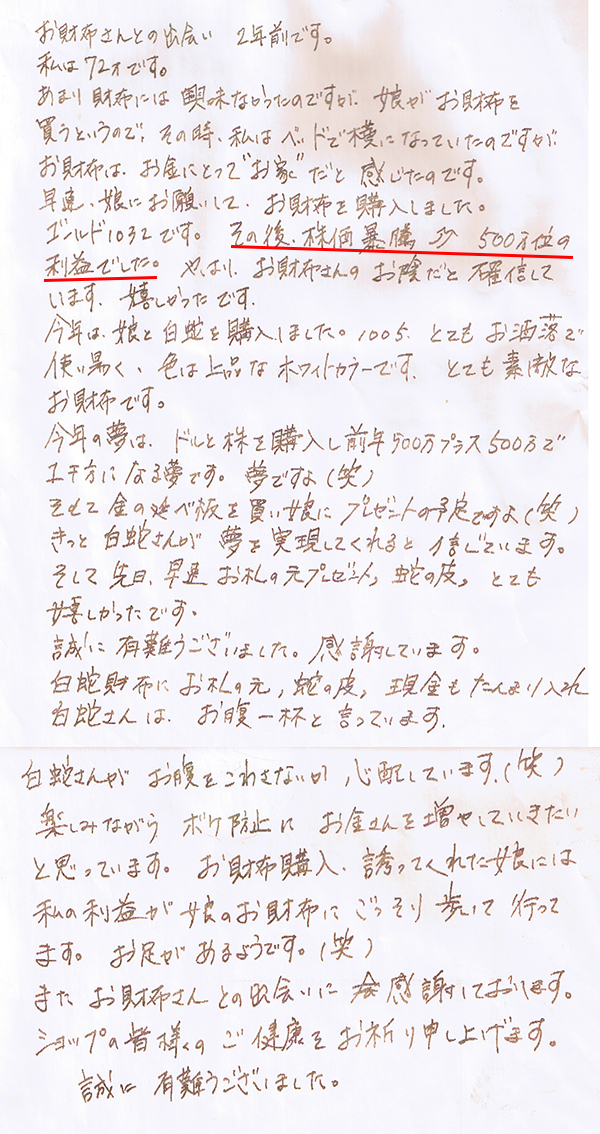 お財布さんとの出会い 2年前です。
私は72才です。
あまり財布には興味なかったのですが、娘がお財布を
買うというので、その時、私はベッドで横になっていたのですが、
お財布は、お金にとって"お家"だと感じたのです。
早速、娘にお願いして、お財布を購入しました。
ゴールド1032です。その後、株価暴騰 500万位の
利益でした。やはり、お財布さんのお陰だと確信して
います。嬉しかったです。
今年は、娘と白蛇を購入しました。1005、とてもお洒落で
使い易く、色は上品なホワイトカラーです。とても素敵な
お財布です。
今年の夢は、ドルと株を購入し前年500万プラス500万で
1千万になる夢です。夢ですよ(笑)
そして金の延べ板を買い娘にプレゼントの予定ですよ(笑)
きっと白蛇さんが夢を実現してくれると信じています。
そして先日、早速お札の元プレゼント、蛇の皮、とても
嬉しかったです。
誠に有難うございました。感謝しています。
白蛇財布にお札の元、蛇の皮、現金もたんまり入れ
白蛇さんは、お腹一杯と言っています。
白蛇さんがお腹をこわさないか、心配しています。(笑)
楽しみながらボケ防止にお金さんを増やしていきたい
と思っています。お財布購入、誘ってくれた娘には
私の利益が娘のお財布にごっそり歩いて行って
ます。お足があるようです。(笑)
またお財布さんとの出会いに感謝しております。
ショップの皆様のご健康をお祈り申し上げます。
誠に有難うございました。